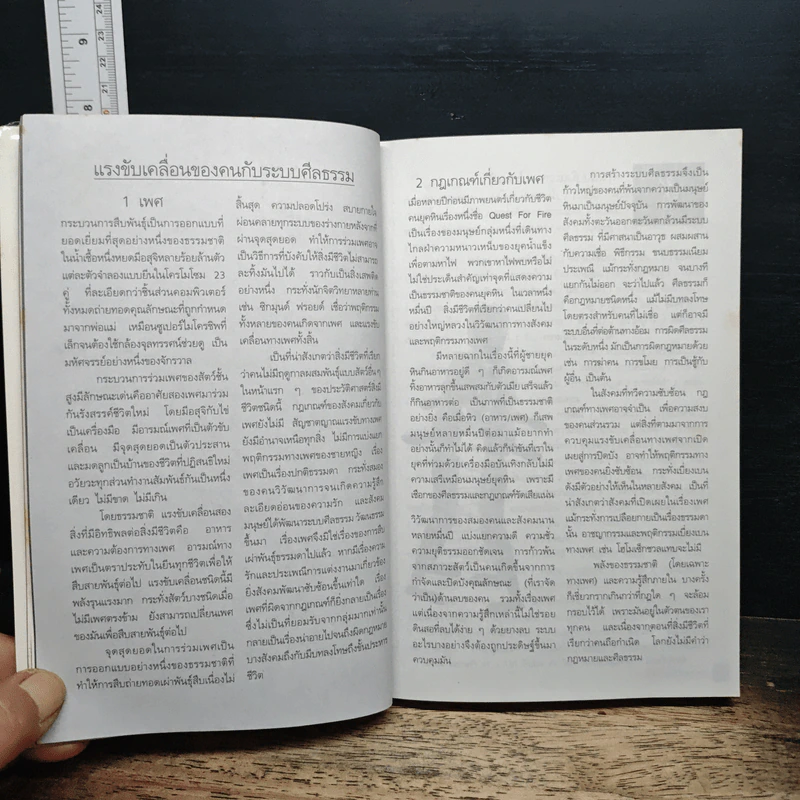 แรงขับเคลื่อนของคนกับระบบศีลธรรม
1 เพศ
กระบวนการสืบพันธุ์เป็นการออกแบบที่
ยอดเยี่ยมที่สุดอย่างหนึ่งของธรรมชาติ
ในน้ำเชื้อหนึ่งหยดมีอสุจิหลายร้อยล้านตัว
แต่ละตัวจำลองแบบยีนในโครโมโซม 23
คู่ ที่ละเอียดกว่าชิ้นส่วนคอมพิวเตอร์
ทั้งหมดถ่ายทอดคุณลักษณะที่ถูกกำหนด
มาจากพ่อแม่ เหมือนซูเปอร์ไมโครชิพที่
เล็กจนต้องใช้กล้องจุลทรรศน์ช่วยดู เป็น
มหัศจรรย์อย่างหนึ่งของจักรวาล
กระบวนการร่วมเพศของสัตว์ชั้น
สูงมีลักษณะเด่นคืออาศัยสองเพศมาร่วม
กันรังสรรค์ชีวิตใหม่ โดยมีอสุจิกับไข่
เป็นเครื่องมือ มีอารมณ์เพศที่เป็นตัวขับ
เคลื่อน มีจุดสุดยอดเป็นตัวประสาน
และมดลูกเป็นบ้านของชีวิตที่ปฏิสนธิใหม่
อวัยวะทุกส่วนทำงานสัมพันธ์กันเป็นหนึ่ง
เดียว ไม่มีขาด ไม่มีเกิน
โดยธรรมชาติ แรงขับเคลื่อนสอง
สิ่งที่มีอิทธิพลต่อสิ่งมีชีวิตคือ อาหาร
และความต้องการทางเพศ อารมณ์ทาง
เพศเป็นตราประทับในยีนทุกชีวิตเพื่อให้
สืบสายพันธุ์ต่อไป แรงขับเคลื่อนชนิดนี้มี
พลังรุนแรงมาก กระทั่งสัตว์บางชนิดเมื่อ
ไม่มีเพศตรงข้าม ยังสามารถเปลี่ยนเพศ
ของมันเพื่อสืบสายพันธุ์ต่อไป
จุดสุดยอดในการร่วมเพศเป็น
การออกแบบอย่างหนึ่งของธรรมชาติที่
ทำให้การสืบถ่ายทอดเผ่าพันธุ์สืบเนื่องไม่
สิ้นสุด ความปลอดโปร่ง สบายกายใจ
ผ่อนคลายทุกระบบของร่างกายหลังจากที่
ผ่านจุดสุดยอด ทำให้การร่วมเพศอาจ
เป็นวิธีการที่บังคับให้สิ่งมีชีวิตไม่สามารถ
ละทิ้งมันไปได้ ราวกับเป็นสิ่งเสพติด
อย่างหนึ่ง กระทั่งนักจิตวิทยาหลายท่าน
เช่น ซิกมุนด์ ฟรอยด์ เชื่อว่าพฤติกรรม
ทั้งหลายของคนเกิดจากเพศ และแรงขับ
เคลื่อนทางเพศทั้งสิ้น
เป็นที่น่าสังเกตว่าสิ่งมีชีวิตที่เรียก
ว่าคนไม่มีฤดูกาลผสมพันธุ์แบบสัตว์อื่น ๆ
ในหน้าแรก ๆ ของประวัติศาสตร์สิ่งมี
ชีวิตชนิดนี้ กฎเกณฑ์ของสังคมเกี่ยวกับ
เพศยังไม่มี สัญชาตญาณแรงขับทางเพศ
ยังมีอำนาจเหนือทุกสิ่ง ไม่มีการแบ่งแยก
พฤติกรรมทางเพศของชายหญิง เรื่อง
เพศเป็นเรื่องปกติธรรมดา กระทั่งสมอง
ของคนวิวัฒนาการจนเกิดความรู้สึก
ละเอียดอ่อนของความรัก และสังคม
มนุษย์ได้พัฒนาระบบศีลธรรม วัฒนธรรม
ขึ้นมา เรื่องเพศจึงมิใช่เรื่องของการสืบ
เผ่าพันธุ์ธรรมดาไปแล้ว หากมีเรื่องความ
รักและประเพณีการแต่งงานมาเกี่ยวข้อง
ยิ่งสังคมพัฒนาซับซ้อนขึ้นเท่าใด เรื่อง
เพศที่ผิดจากกฎเกณฑ์ก็ยิ่งกลายเป็นเรื่อง
ซึ่งไม่เป็นที่ยอมรับจากกลุ่มมากเท่านั้น
กลายเป็นเรื่องน่าอายไปจนถึงผิดกฎหมาย
บางสังคมถึงกับมีบทลงโทษถึงขั้นประหาร
ชีวิต
2 กฎเกณฑ์เกี่ยวกับเพศ
เมื่อหลายปีก่อนมีภาพยนตร์เกี่ยวกับชีวิต
คนยุคหินเรื่องหนึ่งชื่อ Quest For Fire
เป็นเรื่องของมนุษย์กลุ่มหนึ่งที่เดินทาง
ไกลฝ่าความหนาวเหน็บของยุคน้ำแข็ง
เพื่อตามหาไฟ พวกเขาหาไฟพบหรือไม่
ไม่ใช่ประเด็นสำคัญเท่าจุดที่แสดงความ
เป็นธรรมชาติของคนยุคหิน ในเวลาหนึ่ง
หมื่นปี สิ่งมีชีวิตที่เรียกว่าคนเปลี่ยนไป
อย่างใหญ่หลวงในวิวัฒนาการทางสังคม
และพฤติกรรมทางเพศ
มีหลายฉากในเรื่องนี้ที่ผู้ชายยุค
หินกินอาหารอยู่ดี ๆ ก็เกิดอารมณ์เพศ
ทิ้งอาหารลุกขึ้นเสพสมกับตัวเมีย เสร็จแล้ว
ก็กินอาหารต่อ เป็นภาพที่เป็นธรรมชาติ
อย่างยิ่ง คือเมื่อหิว (อาหาร/เพศ) ก็เสพ
มนุษย์หลายหมื่นปีต่อมาแม้อยากทำ
อย่างนั้นก็ทำไม่ได้ คิดแล้วก็น่าขันที่เราใน
ยุคที่ท่วมด้วยเครื่องมือบันเทิงกลับไม่มี
ความเสรีเหมือนมนุษย์ยุคหิน เพราะมี
เชือกของศีลธรรมและกฎเกณฑ์รัดเสียแน่น
วิวัฒนาการของสมองคนและสังคมนาน
หลายหมื่นปี แบ่งแยกความดี ความชั่ว
ความยุติธรรมออกชัดเจน การก้าวพ้น
จากสภาวะสัตว์เป็นคนเกิดขึ้นจากการ
กำจัดและปิดบังคุณลักษณะ (ที่เราจัด
ว่าเป็น)ด้านลบของคน รวมทั้งเรื่องเพศ
แต่เนื่องจากความรู้สึกเหล่านี้ไม่ใช่รอย
ดินสอที่ลบได้ง่าย ๆ ด้วยยางลบ ระบบ
อะไรบางอย่างจึงต้องถูกประดิษฐ์ขึ้นมา
ควบคุมมัน
การสร้างระบบศีลธรรมจึงเป็น
ก้าวใหญ่ของคนที่พ้นจากความเป็นมนุษย์
หินมาเป็นมนุษย์ปัจจุบัน การพัฒนาของ
สังคมทั้งตะวันออกตะวันตกล้วนมีระบบ
ศีลธรรม ที่มีศาสนาเป็นอาวุธ ผสมผสาน
กับความเชื่อ พิธีกรรม ขนบธรรมเนียม
ประเพณี แม้กระทั่งกฎหมาย จนบางที
แยกกันไม่ออก จะว่าไปแล้ว ศีลธรรมก็
คือกฎหมายชนิดหนึ่ง แม้ไม่มีบทลงโทษ
โดยตรงสำหรับคนที่ไม่เชื่อ แต่ก็อาจมี
ระบบอื่นที่ต่อต้านทางอ้อม การผิดศีลธรรม
ในระดับหนึ่ง มักเป็นการผิดกฎหมายด้วย
เช่น การฆ่าคน การขโมย การเป็นชู้กับ
ผู้อื่น เป็นต้น
ในสังคมที่ทวีความซับซ้อน กฎ
เกณฑ์ทางเพศอาจจำเป็น เพื่อความสงบ
ของคนส่วนรวม แต่สิ่งที่ตามมาจากการ
ควบคุมแรงขับเคลื่อนทางเพศจากเปิด
เผยสู่การปิดบัง อาจทำให้พฤติกรรมทาง
เพศของคนยิ่งซับซ้อน กระทั่งเบี่ยงเบน
ดังมีตัวอย่างให้เห็นในหลายสังคม เป็นที่
น่าสังเกตว่าสังคมที่เปิดเผยในเรื่องเพศ
แม้กระทั่งการเปลือยกายเป็นเรื่องธรรมดา
นั้น อาชญากรรมและพฤติกรรมเบี่ยงเบน
ทางเพศ เช่น โฮโมเซ็กชวลแทบจะไม่มี
พลังของธรรมชาติ (โดยเฉพาะ
ทางเพศ) และความรู้สึกภายใน บางครั้ง
ก็เชี่ยวกรากเกินกว่าที่กฎใด ๆ จะล้อม
กรอบไว้ได้ เพราะมันอยู่ในตัวตนของเรา
ทุกคน และเนื่องจากตอนที่สิ่งมีชีวิตที่
เรียกว่าคนถือกำเนิด โลกยังไม่มีคำว่า
กฎหมายและศีลธรรม
9
8
24
23
22
21